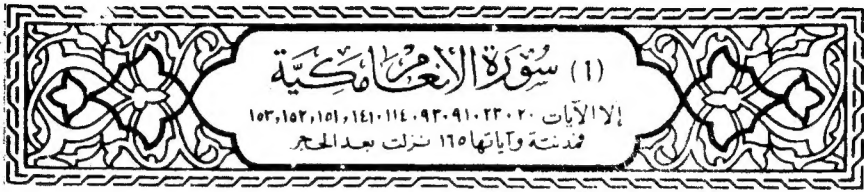 (٦) سورة الأنعام مكية
إلا الآيات ٢٠،٢٣،٩١،٩٣،١١٤،١٤١،١٥١،١٥٢،١٥٣
فمدنية وآياتها ١٦٥ نزلت بعد الحجر